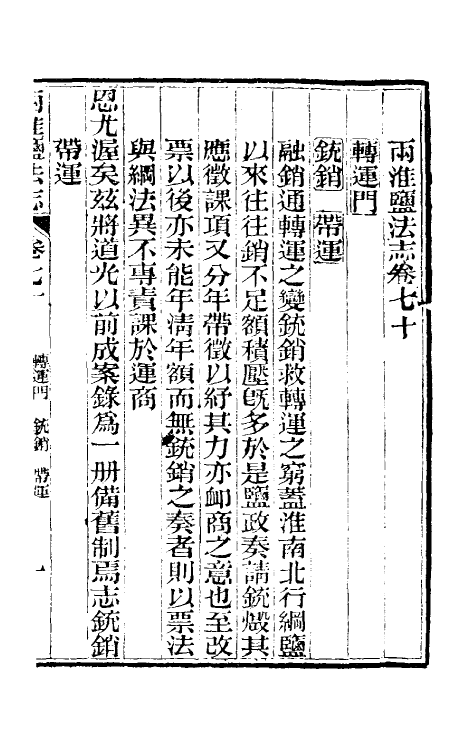 兩淮鹽法志卷七十
轉運門
銃銷 帶運
融銷通轉運之變銃銷救轉運之窮蓋淮南北行綱鹽
以來往往銷不足額積壓旣多於是鹽政奏請銃燬其
應徵課項又分年帶徵以紓其力亦卹商之意也至改
票以後亦未能年清年額而無銃銷之奏者則以票法
與綱法異不專責課於運商
恩尤渥矣茲將道光以前成案錄爲一册備舊制焉志銃銷
帶運
兩淮鹽法志 卷七十 轉運門 銃銷 帶運 一